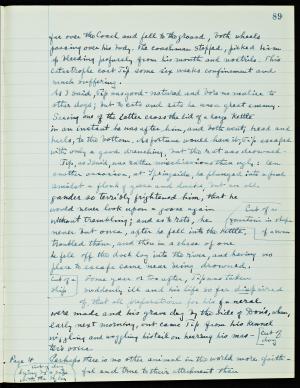 89
for over the Coach and fell to the ground, both wheels
passing over his body. The coachman stopped, picked him
up bleeding profusely from his mouth and nostrils. This
catastrophe cost Tip some six weeks confinement and
much suffering.
As I said, Tip was good-natured and bore no malice to
other dogs; but to cats and rats he was a great enemy.
Seeing one of the latter cross the lid of a large Kettle
in an instant he was after him, and both went, head and
heels, to the bottom. As fortune would have it, Tip escaped
with only a good drenching, but the rat was drowned.
Tip, as I said, was rather mischievous than ugly. On
another occasion, at Springside, he plunged into a pond
amidst a flock of geese and ducks, but an old
gander so terribly frightened him, that he
would never look upon a goose again
without trembling; and as to rats, he
never but once, after he fell into the kettle,
troubled them, and then in a chase of one
he fell off the dock log into the river, and having no
place to escape came near being drowned.
Cut of a
in shape
of a urn
Cut of a
ship
Some year or two after, Tip was taken
suddenly ill and his life so far despaired
of, that all preparations for his funeral
were made and his grave dug by the side of Doris, when,
early next morning, out came Tip from his kennel
wiggling and waggling his tail on hearing his mas-
ter's voice.
Cut of
dog
Page 4
Perhaps there is no other animal in the world more faith-
ful and true to their attachment than